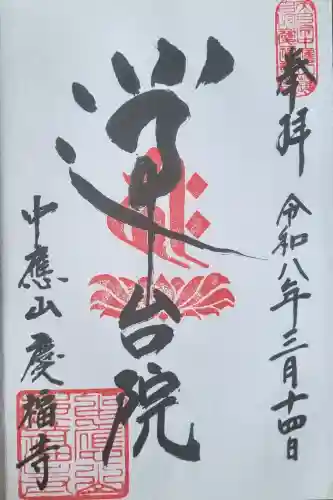 奉拝
令和八年三月十四日
蓮台院
中應山慶福寺